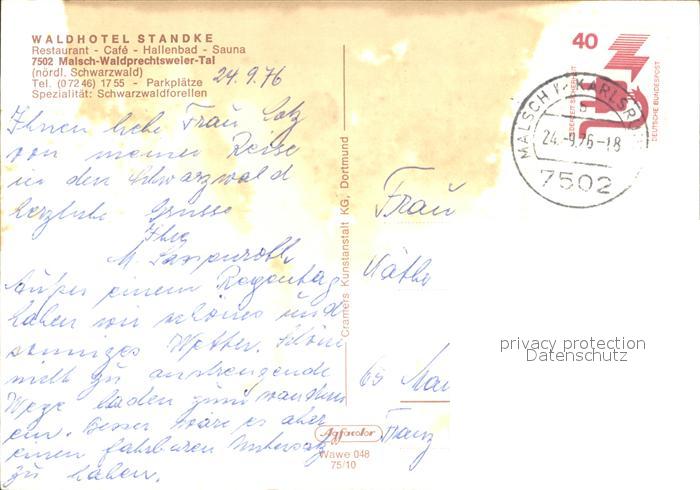 WALDHOTEL STANDKE
Restaurant - Café - Hallenbad - Sauna
7502 Malsch-Waldprechtsweier-Tal
(nördl. Schwarzwald)
Tel. (07246) 1755 - Parkplätze
Spezialität: Schwarzwaldforellen
24.9.76
Ihnen liebe Frau
von meiner Reise
in den Schwarzwald
herzliche Grüsse
Ihre
M.
Außer einem Regentag
haben wir schönes und
sonniges Wetter. Schöne
nicht zu anstrengende
Wege laden zum wandern
ein. Besser wäre es aber
einen fahrbaren Untersatz
zu haben.
Cramers Kunstanstalt KG, Dortmund
Agfacolor
Wawe 048
75/10
40
JEDERZEIT SICHERHEIT
DEUTSCHE BUNDESPOST
MALSCH KARLSR
24.-9.76-18
7502
Frau
Käthe
65 Mai
Franz
privacy protection
Datenschutz